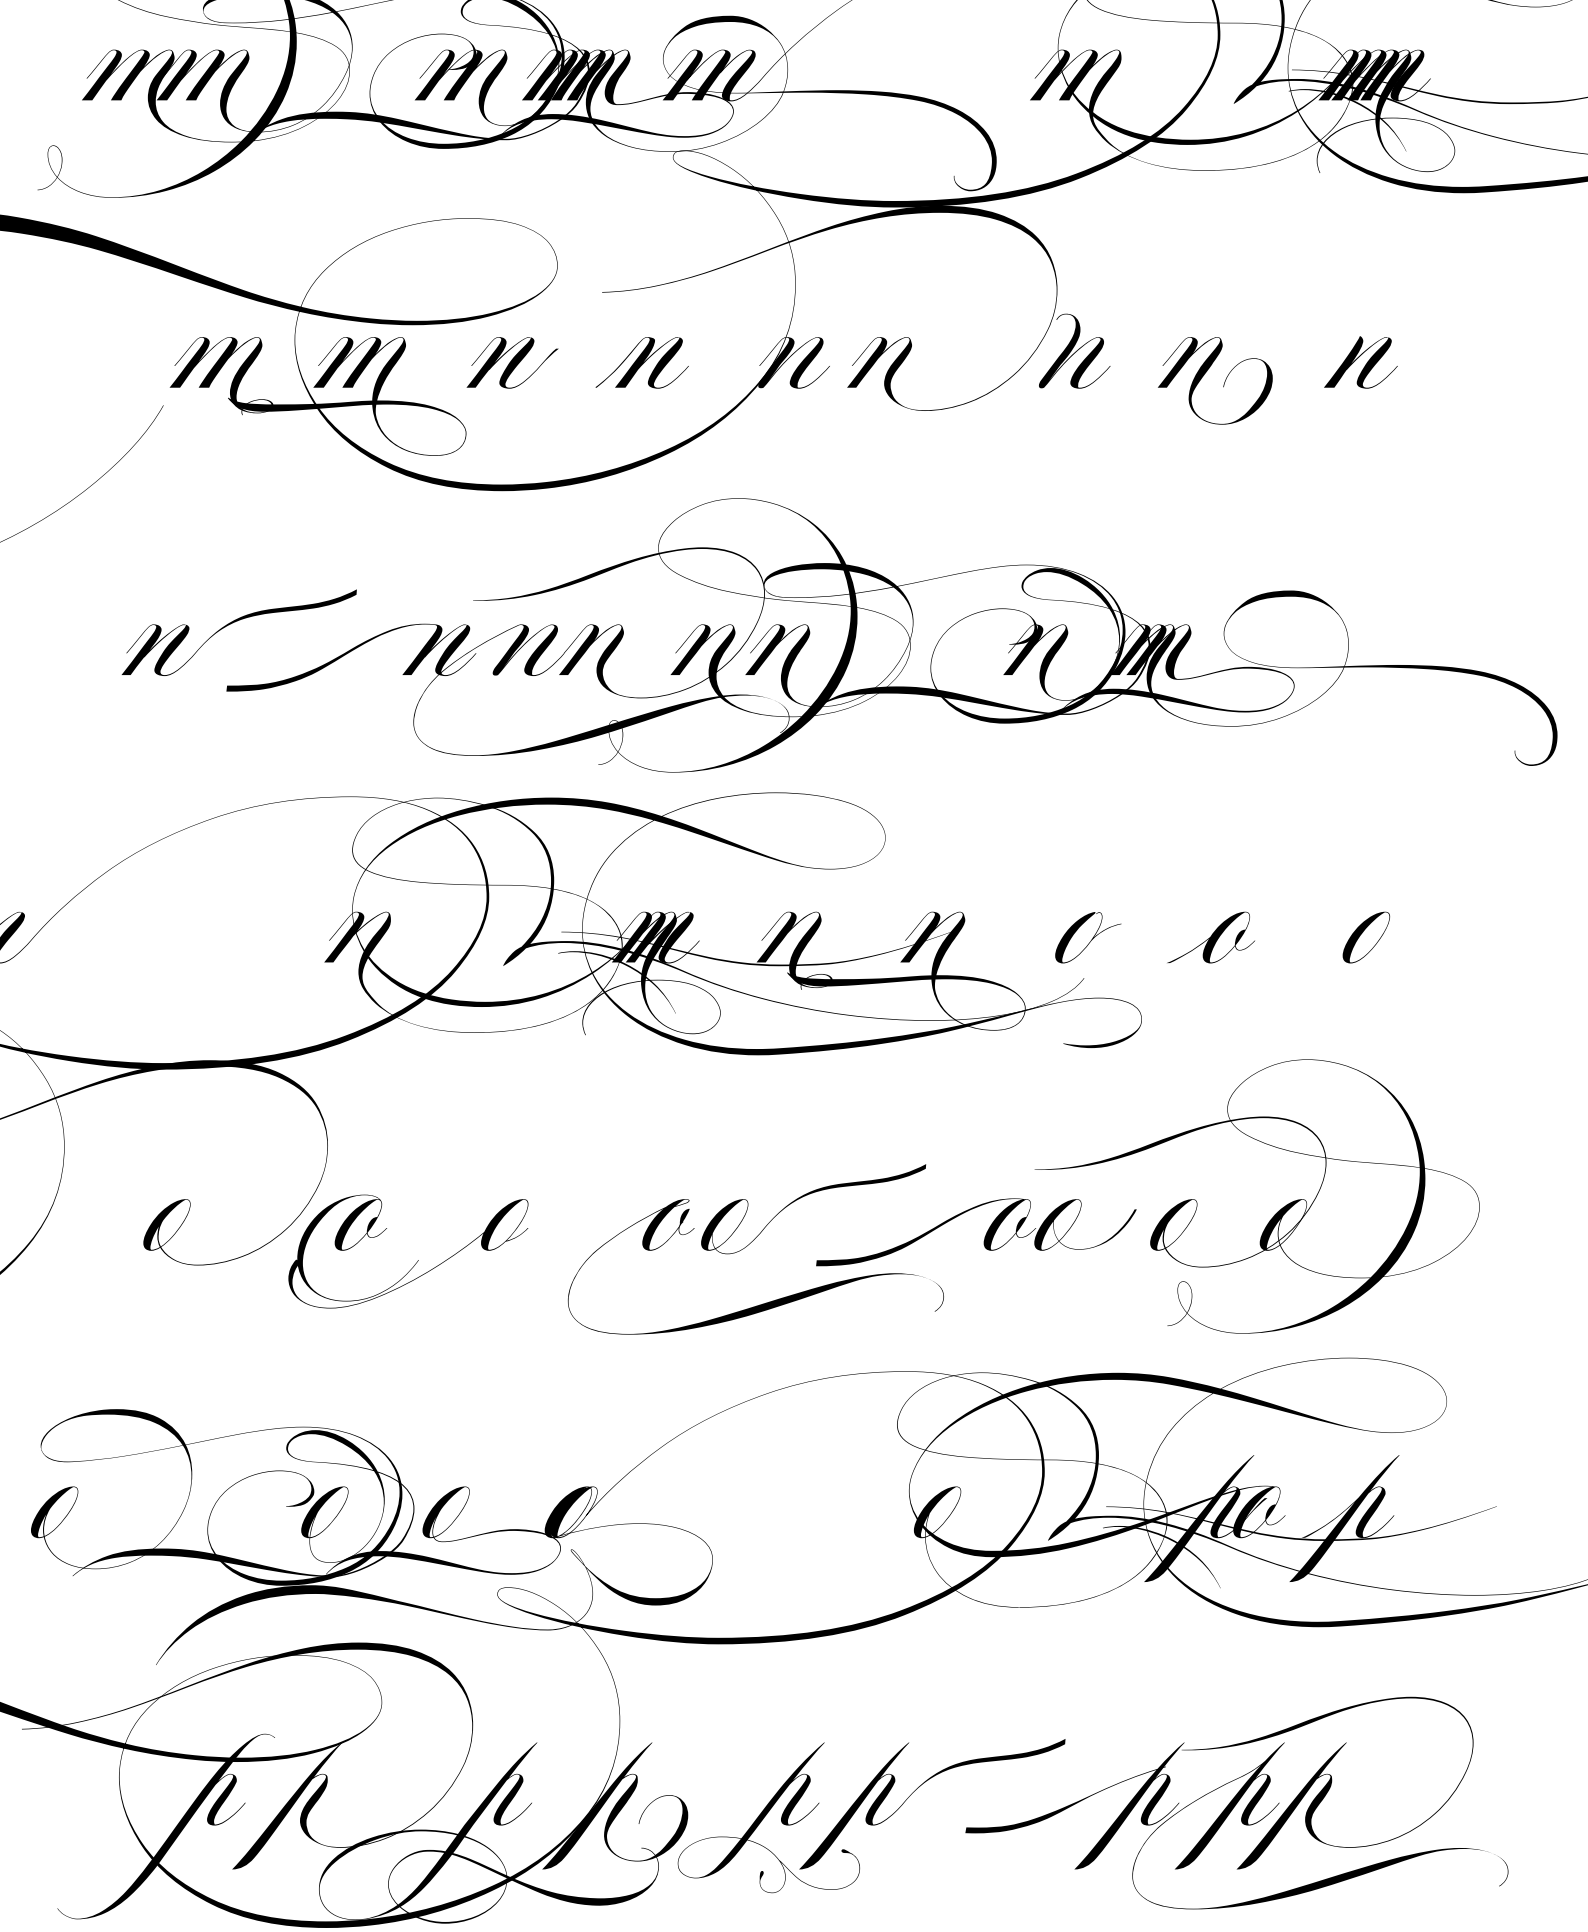 m m m m m m m
m m n n n n n n n
n n n n n n n m
n n m n n o o o
o o o o o o o o o
o o o o o p p
p p p p p p p p p